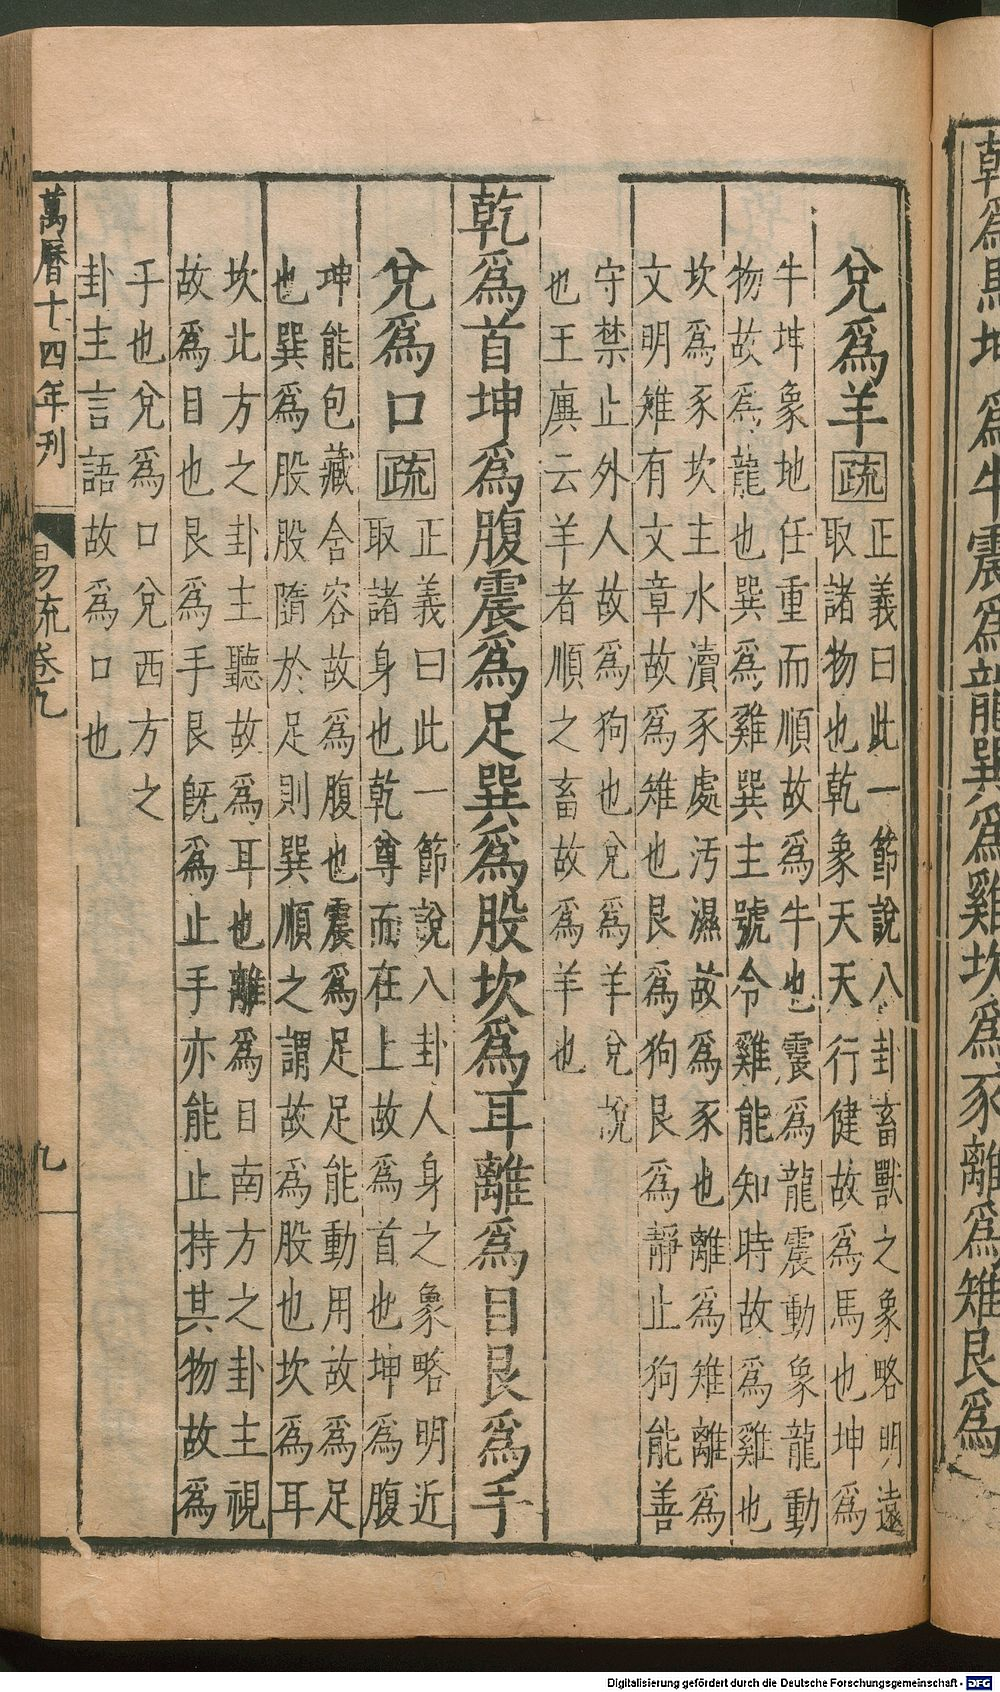 乾爲馬坤爲牛震爲龍巽爲雞坎爲豕離爲雉艮爲
兌爲羊疏
正義曰此一節說八卦畜獸之象略明遠
取諸物也乾象天天行健故爲馬也坤爲
牛坤象地任重而順故爲牛也震爲龍震動象龍動
物故爲龍也巽爲雞巽主號令雞能知時故爲雞也
坎爲豕坎主水瀆豕處汚濕故爲豕也離爲雉離爲
文明雉有文章故爲雉也艮爲狗艮爲靜止狗能善
守禁止外人故爲狗也兌爲羊兌說
也王廙云羊者順之畜故爲羊也
乾爲首坤爲腹震爲足巽爲股坎爲耳離爲目艮爲手
兌爲口疏
正義曰此一節說八卦人身之象略明近
取諸身也乾尊而在上故爲首也坤爲腹
坤能包藏含容故爲腹也震爲足足能動用故爲足
也巽爲股股隨於足則巽順之謂故爲股也坎爲耳
坎北方之卦主聽故爲耳也離爲日南方之卦主視
故爲目也艮爲手艮旣爲止手亦能止持其物故爲
手也兌爲口兌西方之
卦主言語故爲口也
萬曆十四年刋
易疏卷九
九
Digitalisierung gefördert durch die Deutsche Forschungsgemeinschaft - DFG